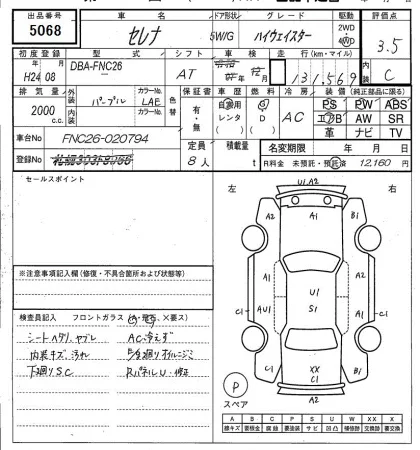 出品番号 車名 ドア形状 グレード 駆動 評価点
5068 セレナ 5W/G ハイウェイスター 2WD 4WD 3.5
初度登録 型式 シフト 車検 走行(km・マイル) 内装
H24 08 DBA-FNC26 AT 131,569 C
排気量 外装 カラーNo. 色替 保証書 車歴 燃料 冷房 装備(純正部品に限る)
2000 c.c. パープル LAE 有・無 自家用 レンタ G D AC PS PW ABS
内装 カラーNo. エアB AW SR
革 ナビ TV
車台No FNC26-020794 定員 積載量 名変期限 年 月 日
登録No 8人 t R料金 未預託・預託済 12,160 円
セールスポイント
左 右
U1 A2
A2 A1 B1
A1 U1 A2
C1 AU1 S1 A1 C1
C1 XX C1 B1
A2
※注意事項記入欄(修復・不具合箇所および状態等)
検査員記入 フロントガラス(A・飛石、×要ス)
シートヘタリ、ヤブレ ACガス冷えず
内装キズ、汚れ
下廻りS.C RパネルU・修正
P
スペア
A B C P S U W X XX
線キズ 要板金 腐食 要塗装 サビ 凹凸 補修跡 交換跡 要交換